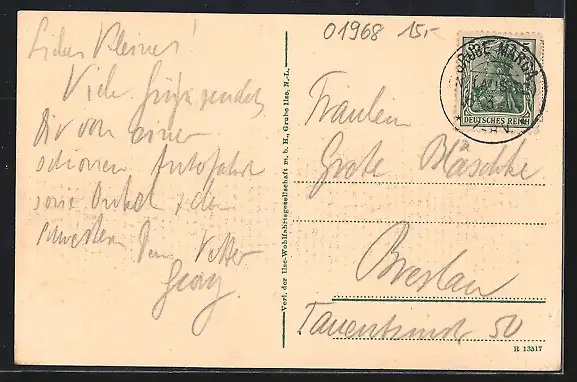 01968 15,-
Liebes Kleines!
Viele Grüße sendet
Dir von einer
schönen Autofahrt
sowie Onkel & den
Schwestern Dein Vetter
Georg.
Verl. der Ilse-Wohlfahrtsgesellschaft m. b. H., Grube Ilse, N.-L.
GRUBE MARGA
DEUTSCHES REICH
Fräulein
Grete Bläschke
Breslau
Tauentzinstr 50
R 13517